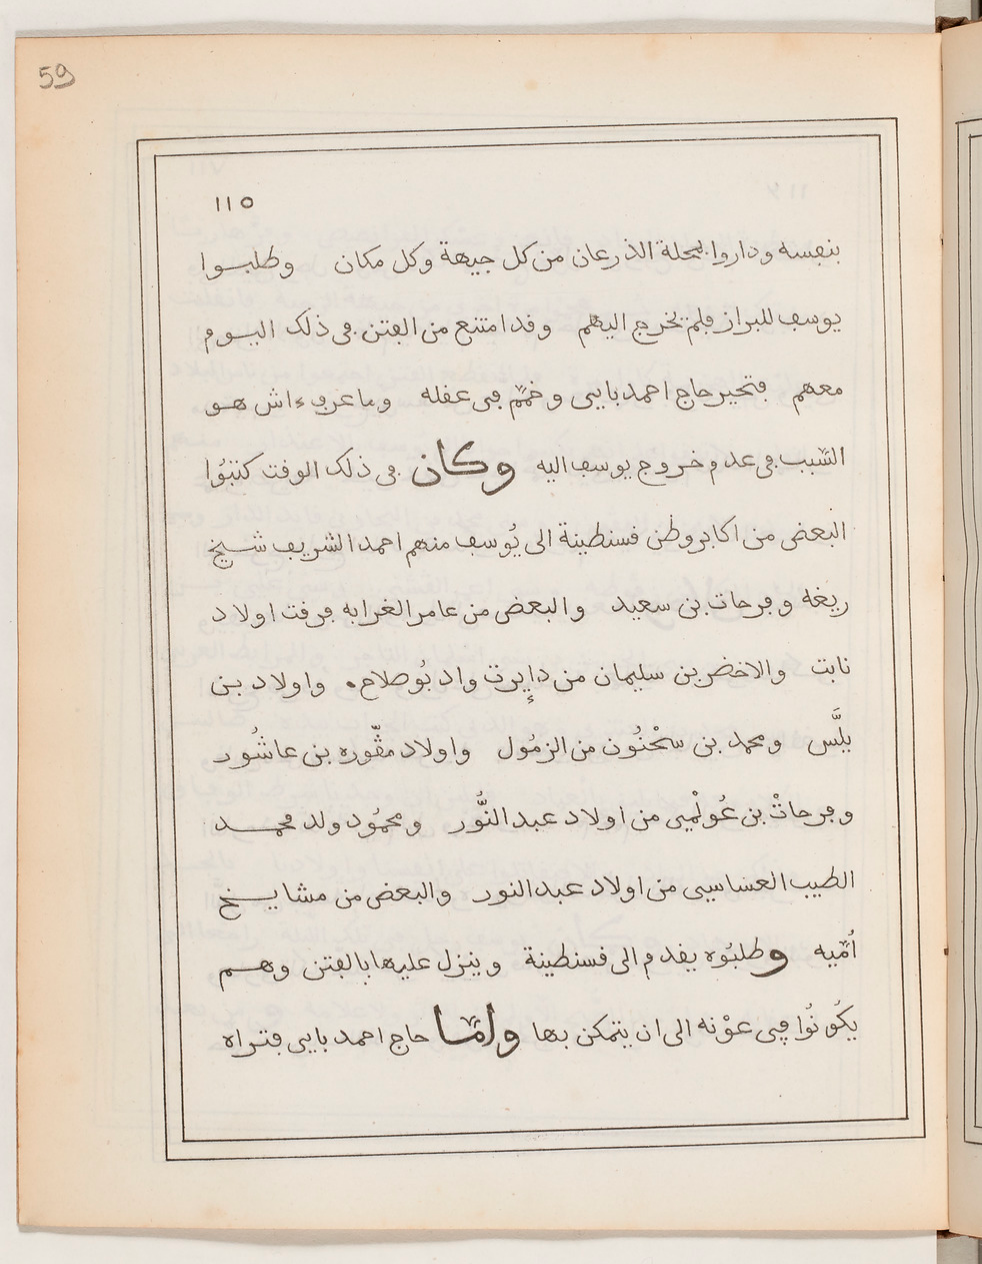 59
١١٥
بنفسه وداروا بمحلة الذرعان من كل جيهة وكل مكان وطلبوا
يوسف للبراز فلم يخرج اليهم وقد امتنع من الفتن في ذلك اليوم
معهم فتحير حاج احمد بايي وخمّم في عقله وما عرف ءاش هو
السّبب في عدم خروج يوسف اليه وكان في ذلك الوقت كتبُوا
البعض من اكابر وطن قسنطينة الى يُوسف منهم احمد الشريف شيخ
ريغه وفرحات بن سعيد والبعض من عامر الغرابه فرقت اولاد
نابت والاخضر بن سليمان من دإيرت واد بُوصلاح. واولاد بن
يلَّس ومحمد بن سحْنُون من الزمُول واولاد مقّوره بن عاشُور
وفرحاتْ بن عُولْمي من اولاد عبد النُّور ومحمُود ولد محمد
الطيب العساسي من اولاد عبد النور والبعض من مشايخ
اُمّيه وطلبُوه يقدم الى قسنطينة وينزل عليها بالفتن وهم
يكُونُوا في عوْنه الى ان يتمكن بها وامّا حاج احمد بايي فتراه